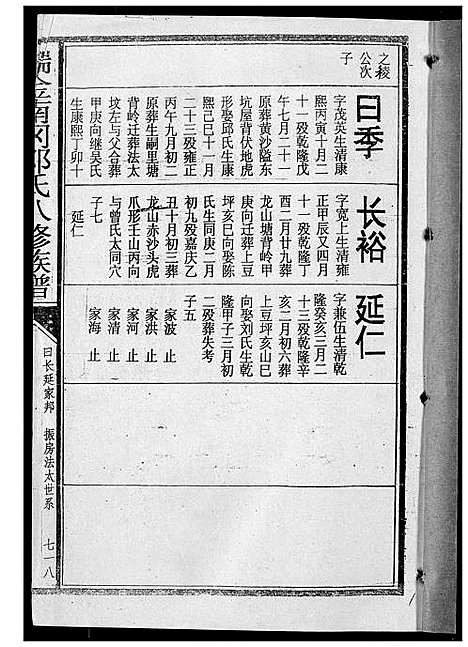 之稜
公次
子
曰季
字茂英生清康
熙丙寅十月二
十一殁乾隆戊
午七月二十一
原葬黄沙隘东
坑屋背伏地虎
形娶邱氏生康
熙己巳十一月
二十三殁雍正
丙午九月初二
原葬生嗣里塘
背岭迁葬法太
坟左与父合葬
甲庚向继吴氏
生康熙丁卯十
长裕
字宽上生清雍
正甲辰又四月
十一殁乾隆丁
酉二月廿九葬
龙山塘背岭甲
庚向迁葬上豆
坪亥巳向娶陈
氏生同庚二月
初九殁嘉庆乙
丑十月初三葬
龙山赤沙头虎
爪形壬山丙向
与曾氏太同穴
子七
延仁
延仁
字兼伍生清乾
隆癸亥三月二
十三殁乾隆辛
亥二月初六葬
上豆坪亥山巳
向娶刘氏生乾
隆甲子三月初
二殁葬失考
子五
家波 止
家洪 止
家河 止
家清 止
家海 止
氏八修族谱
曰长延家邦 振房法太世系
七一八